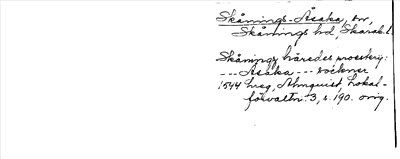 Skånings-Åsaka, sn,
Skånings hd, Skarab. l.
Skånings häredes prosterij:
--- Asaka --- sockner
1544 hreg, Almquist, Lokal-
förvaltn. 3, s. 190. orig.